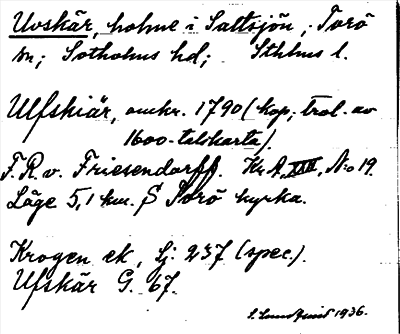 Uvskär, holme i Saltsjön, Torö
sn; Sotholms hd; Sthlms l.
Ulfskiär, omkr. 1790 (kop; trol. av
1600-talskarta).
F. R. v. Friesendorff. Kr. A, XXIII, N:o 19.
Läge 5,1 km. S Torö kyrka.
Krogen ek, lj. 237 (spec.).
Ufskär G. 67.
S. Lundquist 1936.